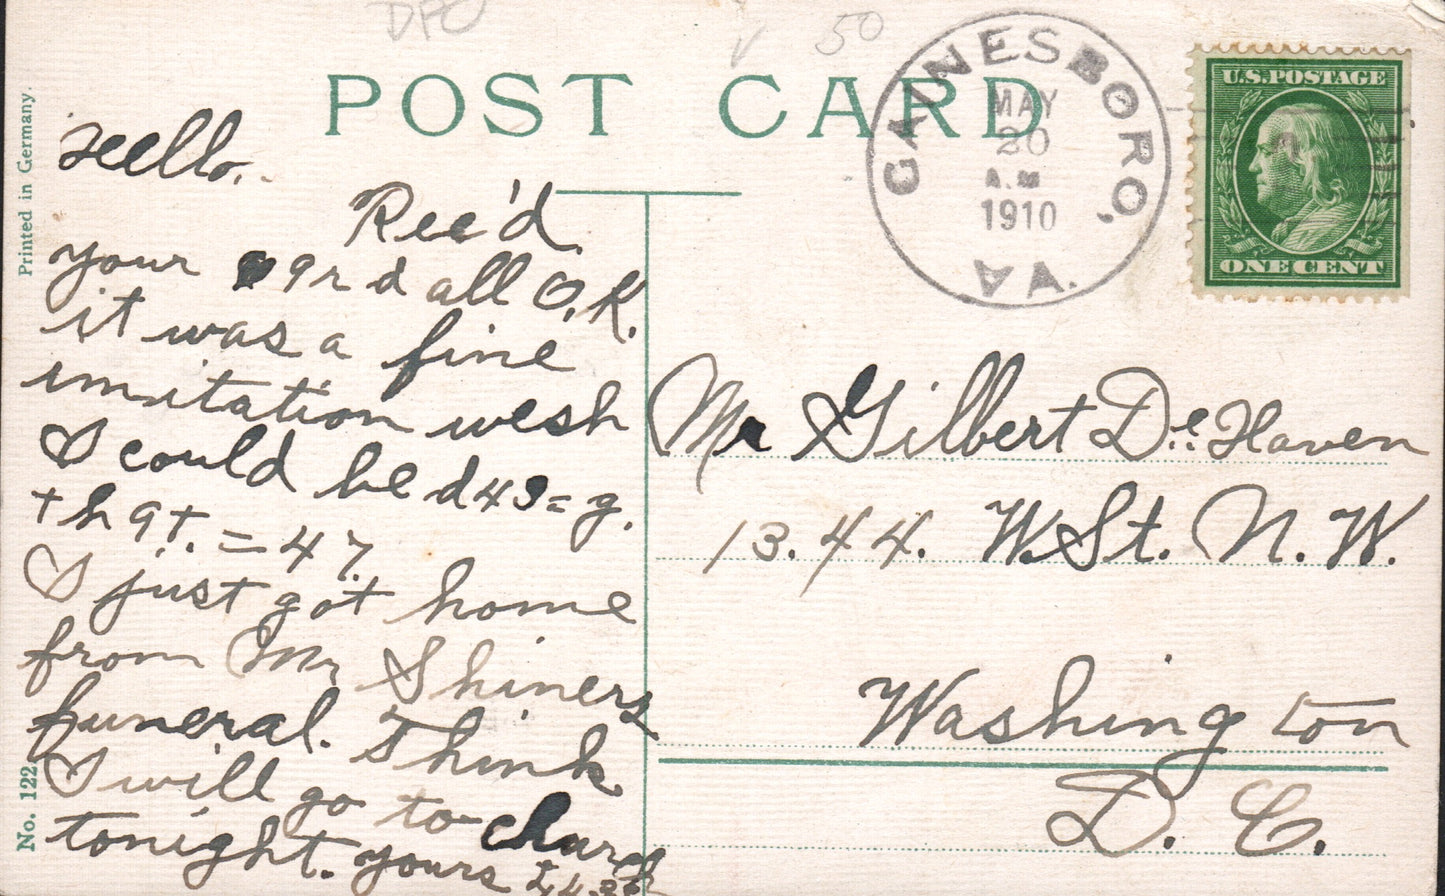 POST CARD
Printed in Germany.
No. 122
GAINESBORO, VA.
MAY
20
A.M
1910
U.S. POSTAGE
ONE CENT
Hello.
Rec'd
your 9rd all O.K.
it was a fine
imitation wesh
I could be d49=g.
th9t. = 47.
I just got home
from Mr Shiners
funeral. Think
I will go to church
tonight. yours
Mr Gilbert De Haven
1344. W. St. N. W.
Washington
D. C.
50